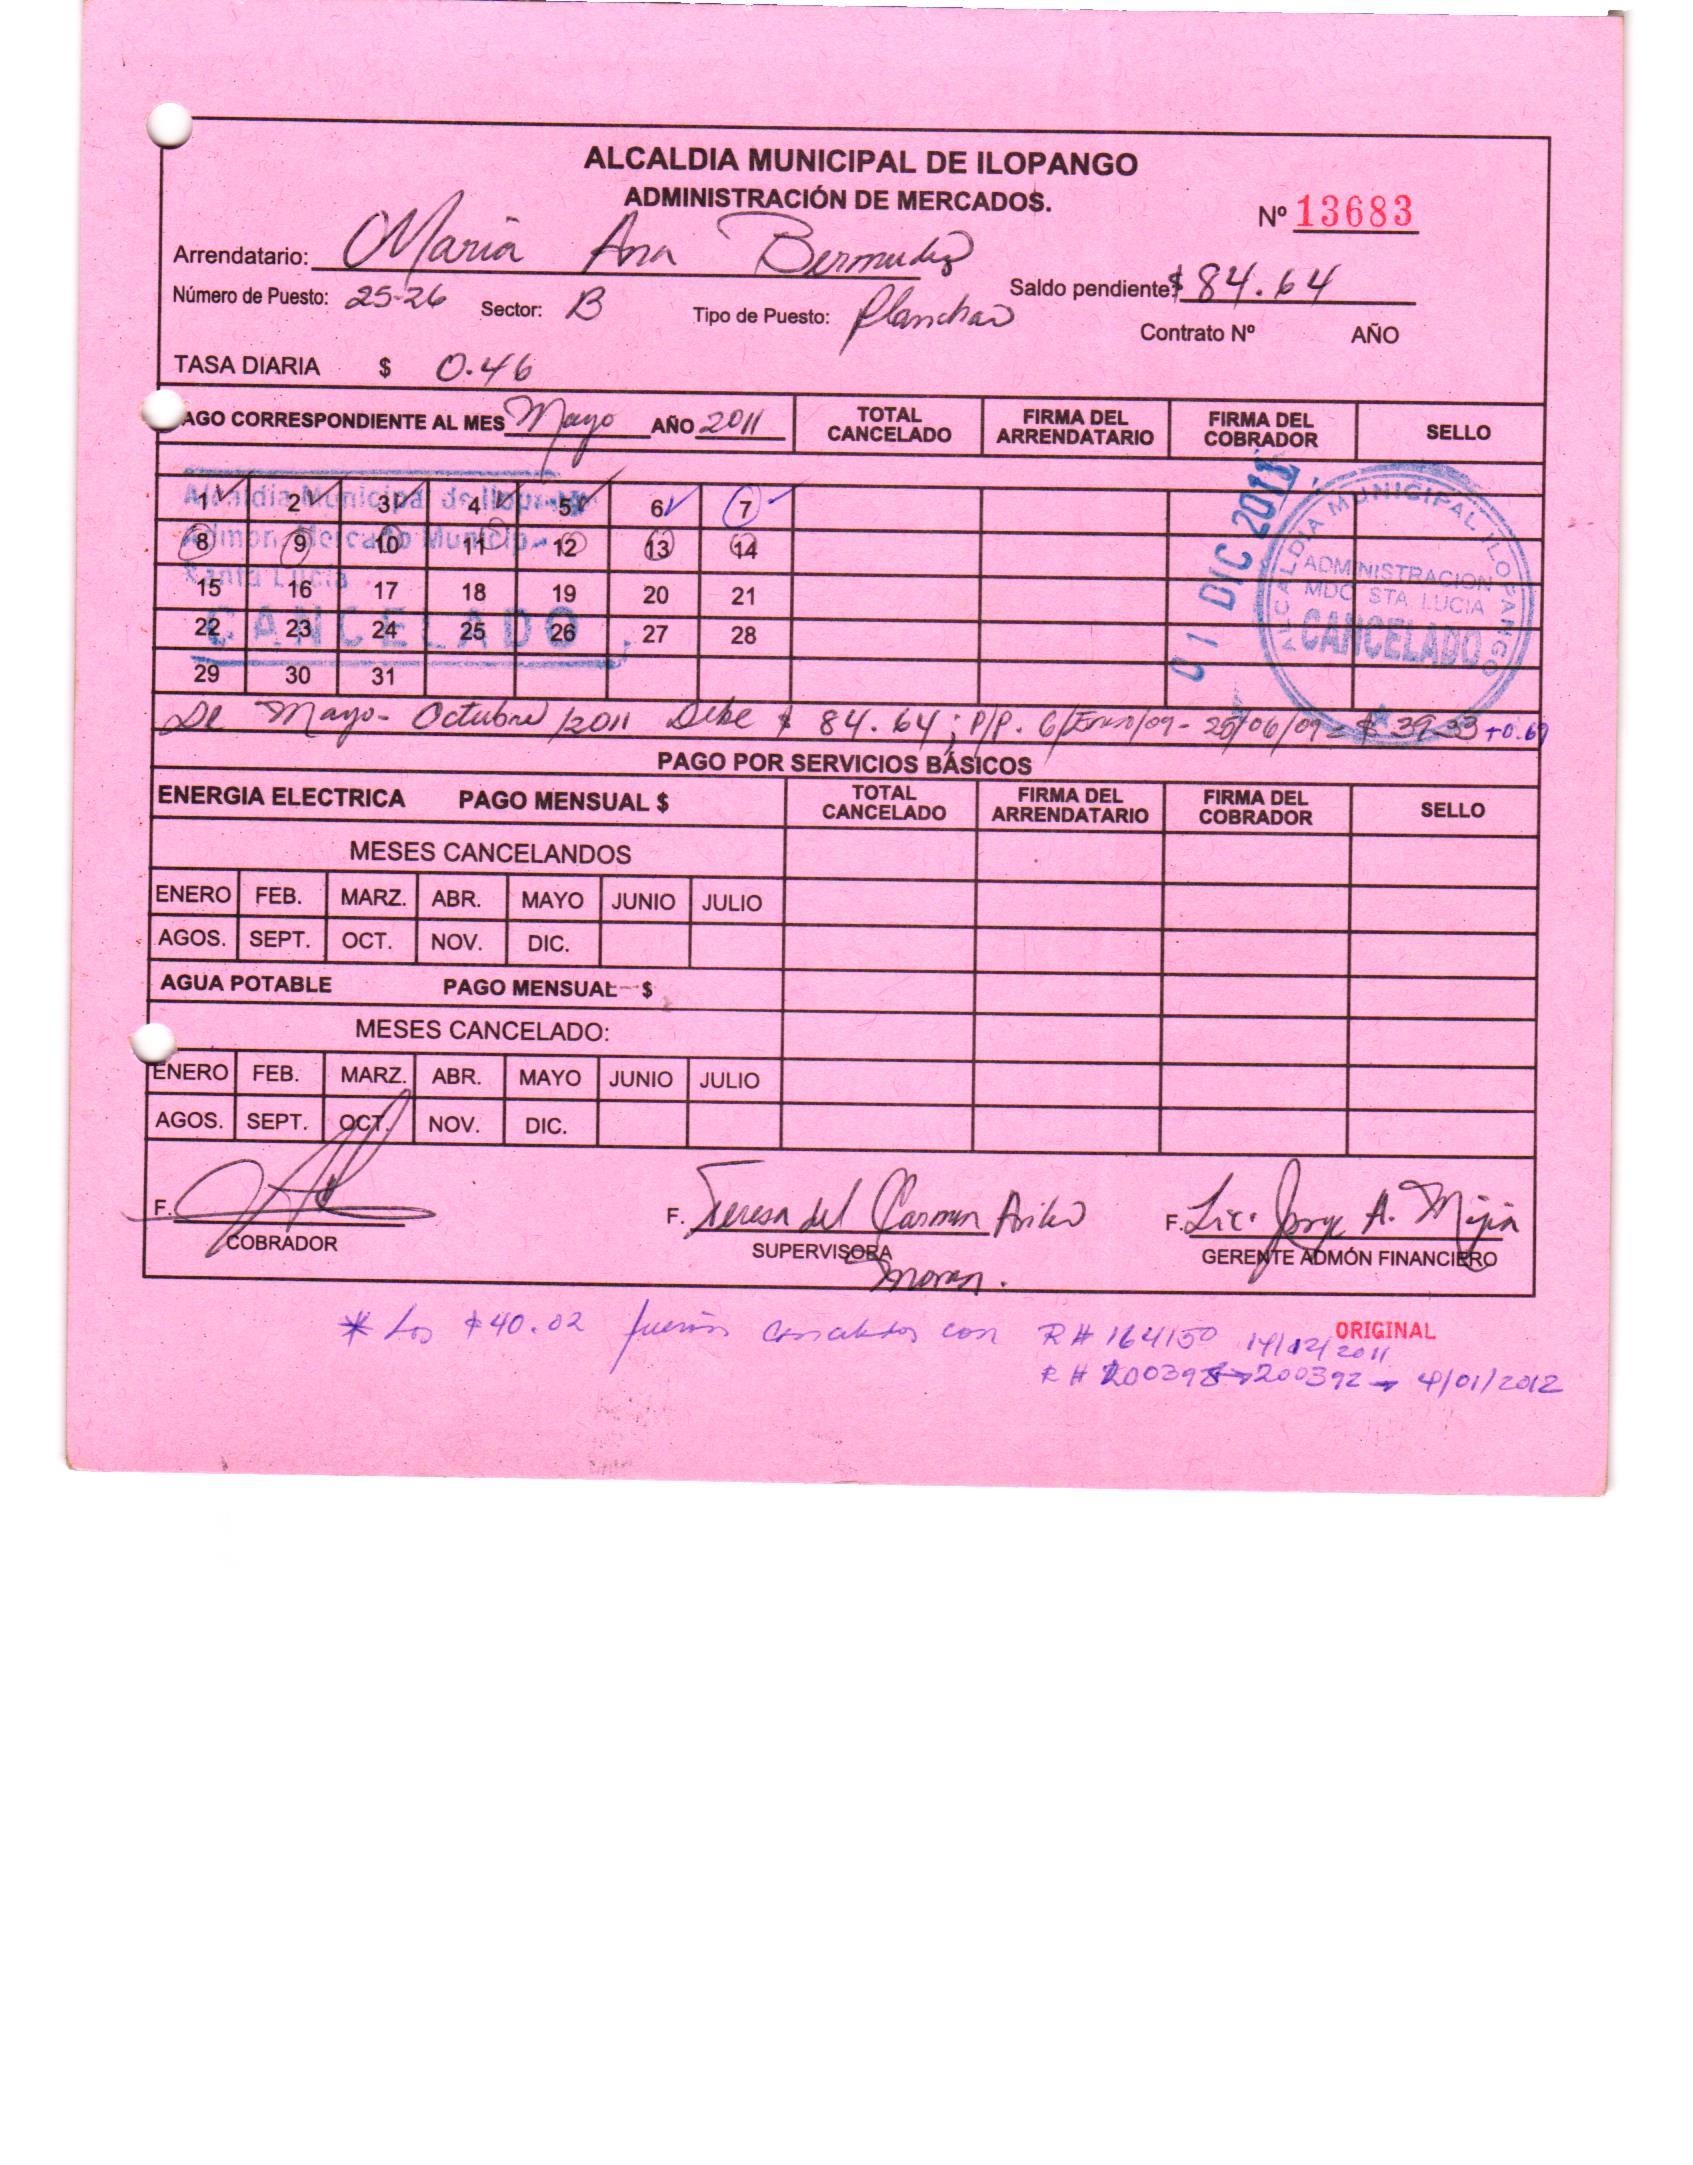 ALCALDIA MUNICIPAL DE ILOPANGO
ADMINISTRACIÓN DE MERCADOS.
Nº 13683
Arrendatario: Maria Ana Bermudez
Saldo pendiente $ 84.64
Número de Puesto: 25-26 Sector: B Tipo de Puesto:
Contrato Nº AÑO
TASA DIARIA $ 0.46
AGO CORRESPONDIENTE AL MES Mayo AÑO 2011 TOTAL CANCELADO FIRMA DEL ARRENDATARIO FIRMA DEL COBRADOR SELLO
1 2 3 4 5 6 7
8 9 10 11 12 13 14
15 16 17 18 19 20 21
22 23 24 25 26 27 28
29 30 31
Alcaldia Municipal de Ilopango
Admon. Mercado Municip
Santa Lucia
CANCELADO
01 DIC 2011
ALCALDIA MUNICIPAL ILOPANGO
ADMINISTRACION
MDO. STA. LUCIA
CANCELADO
De Mayo - Octubre/2011 Debe $ 84.64; P/P. 6/Enero/09 - 25/06/09 = $ 39.33 +0.69
PAGO POR SERVICIOS BÁSICOS
ENERGIA ELECTRICA PAGO MENSUAL $ TOTAL CANCELADO FIRMA DEL ARRENDATARIO FIRMA DEL COBRADOR SELLO
MESES CANCELANDOS
ENERO FEB. MARZ. ABR. MAYO JUNIO JULIO
AGOS. SEPT. OCT. NOV. DIC.
AGUA POTABLE PAGO MENSUAL $
MESES CANCELADO:
ENERO FEB. MARZ. ABR. MAYO JUNIO JULIO
AGOS. SEPT. OCT. NOV. DIC.
F. F. Teresa del Carmen F. Lic. Jorge A. Mejia
COBRADOR SUPERVISORA GERENTE ADMÓN FINANCIERO
Moran.
* Los $40.02 fueron cancelados con R# 164150 14/12/2011
ORIGINAL
R# 200392 → 4/01/2012